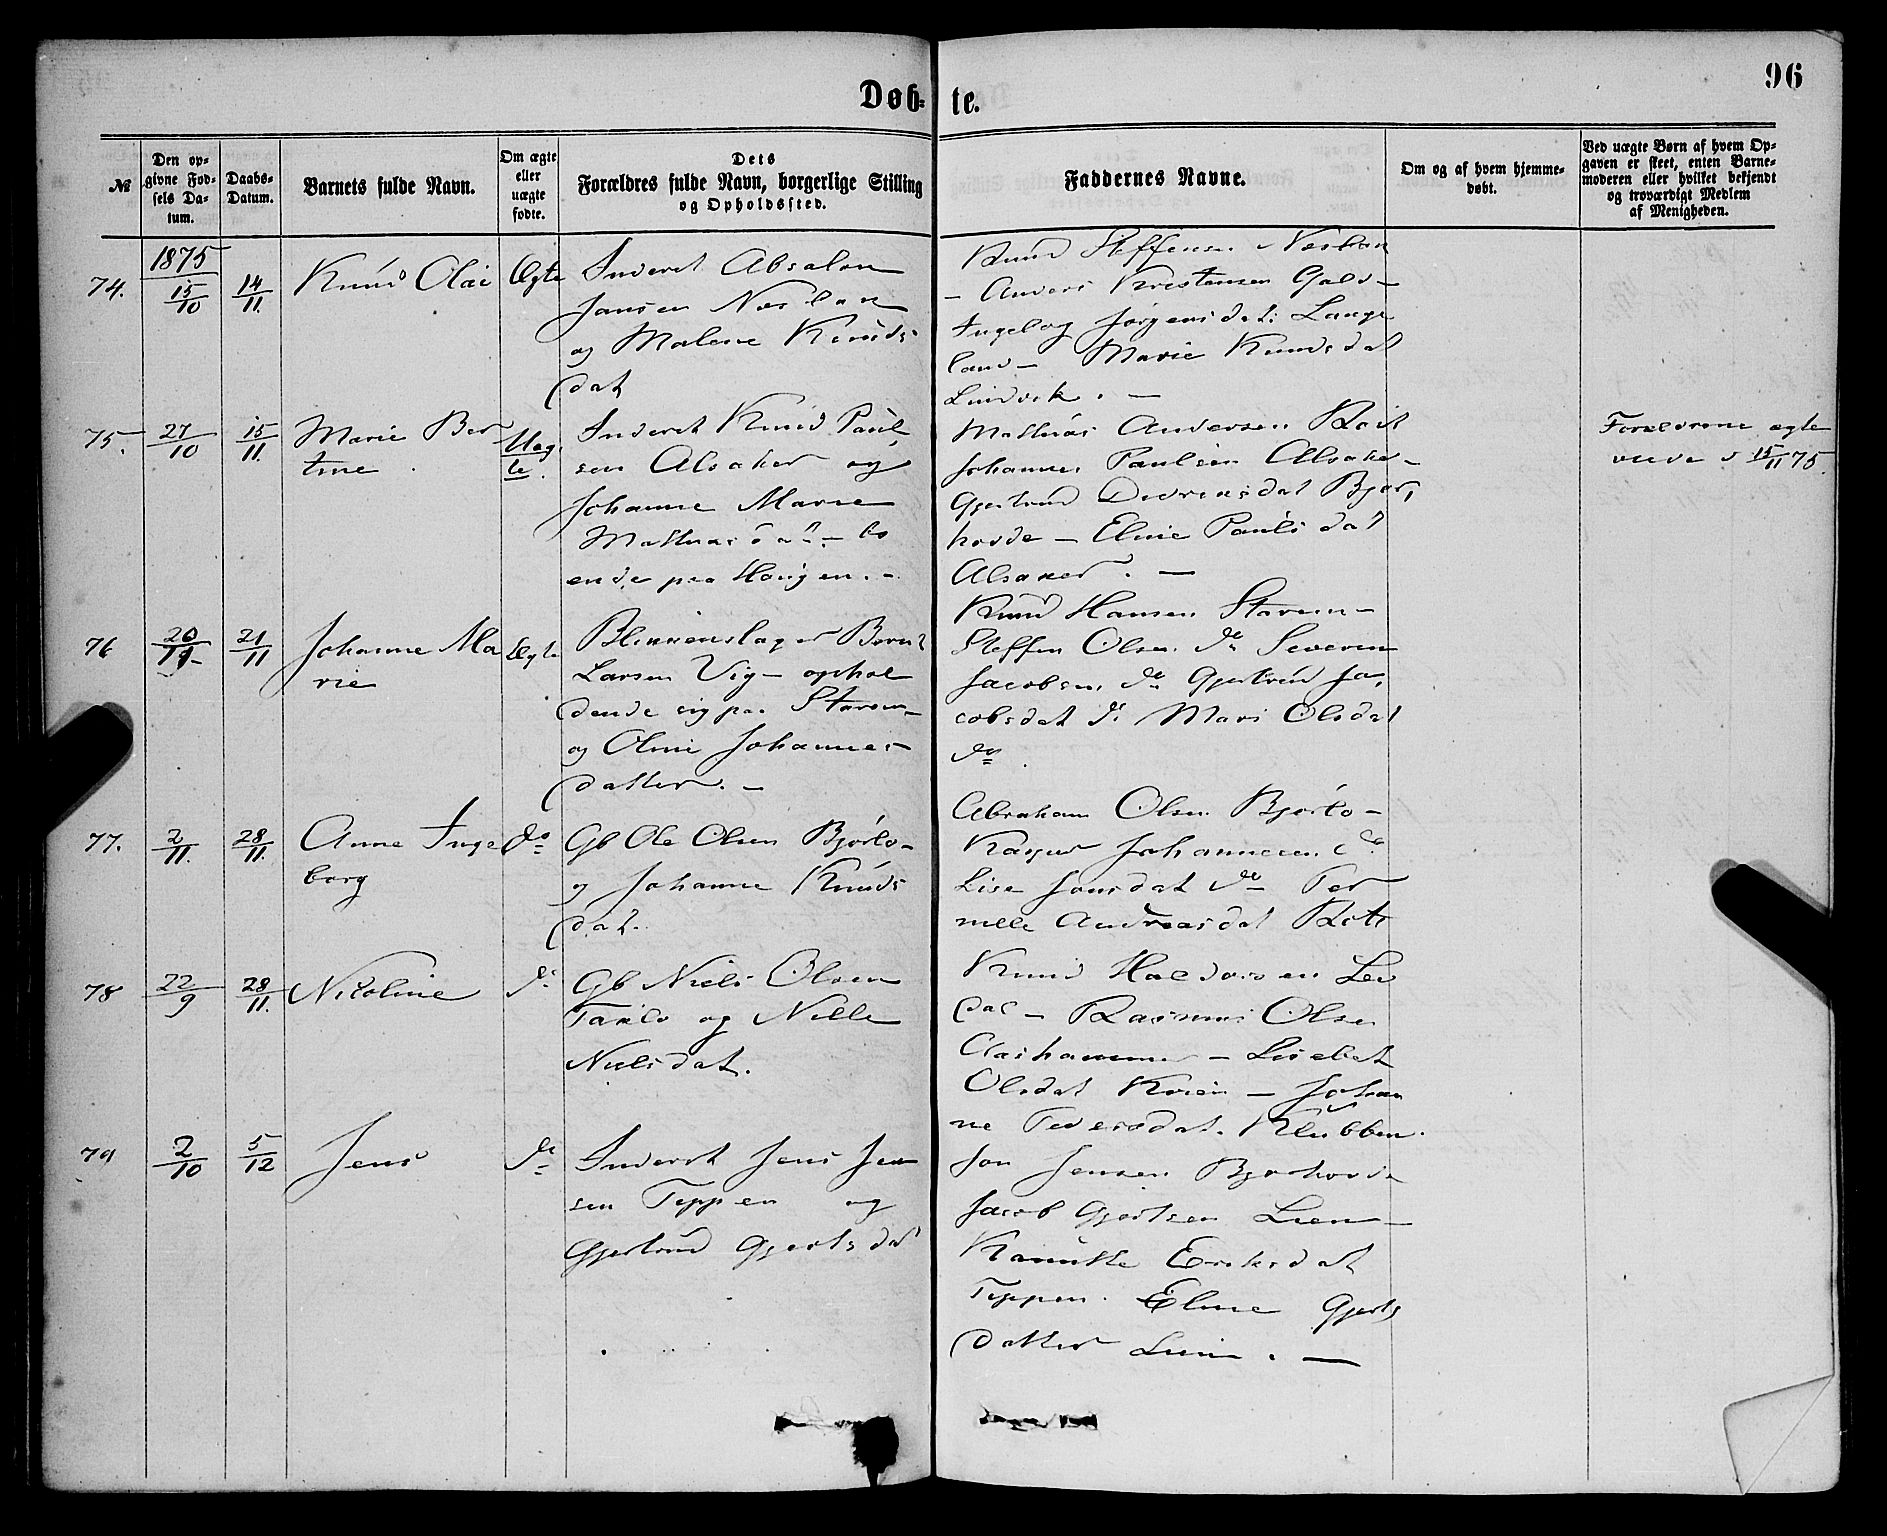 96
Døb= te.
№
Den op=
givne Fød=
sels Da=
tum.
Daabs=
Datum.
Barnets fulde Navn.
Om ægte
eller
uægte
fødte.
Dets
Forældres fulde Navn, borgerlige Stilling
og Opholdssted.
Faddernes Navne.
Om og af hvem hjemme=
døbt.
Ved uægte Børn af hvem Op=
gaven er skeet, enten Barne=
moderen eller hvilket bekjendt
og troværdigt Medlem
af Menigheden.
1875
74.
15/10
14/11.
Knud Olai
Ægte
Inderst Absalon
Jansen
og Malene Knuds
dat
Knud Steffensen
– Anders Kristensen
Ingebog Jørgensdat: Lange
land – Marie Knudsdat
Lindvik. –
75.
27/10
15/11.
Marie Ber
tine
Uæg
te.
Inderst Knud Paul
sen Alsaker og
Johanne Marie
Mathiasdat – bo
ende paa Haugen. –
Mathias Andersen
Johannes Paulsen Alsaker –
Gjertrud
hovde – Eline Paulsdat
Alsaker. –
Forældrene ægte
viede d 15/11 75.
76
21/11
Johanne Ma
rie
Ægte
Blikkenslager Bernt
Larsen Vig – ophol
dende sig paa
og Oline Johannes
datter. –
Knud Hansen
Steffen Olsen do Severin
Jacobsen do Gjertrud Ja,
cobsdat do Mari Olsdat
do
77.
2/11.
28/11.
Anne Inge
borg
do
Gb Ole Olsen Bjørlo –
og Johanne Knuds
dat.
Abraham Olsen Bjørlo –
Kasper Johannesen do
Lise Jonsdat do Per
nelle Andreasdat
78
22/9
28/11.
Nicoline
do
Gb Niels Olsen
og Nille
Nielsdat.
Knud Haldorsen Lei
dal – Rasmus Olsen
– Lisebet
Olsdat – Johan
ne Pedersdat. Klubben.
79
2/10
5/12
Jens
do
Inderst Jens Jen
sen Teppen og
Gjertrud Gjertsdat
Jon Jensen
Jacob Gjertsen Lien –
Eriksdat
Teppen. Eline Gjerts
datter Lien. –